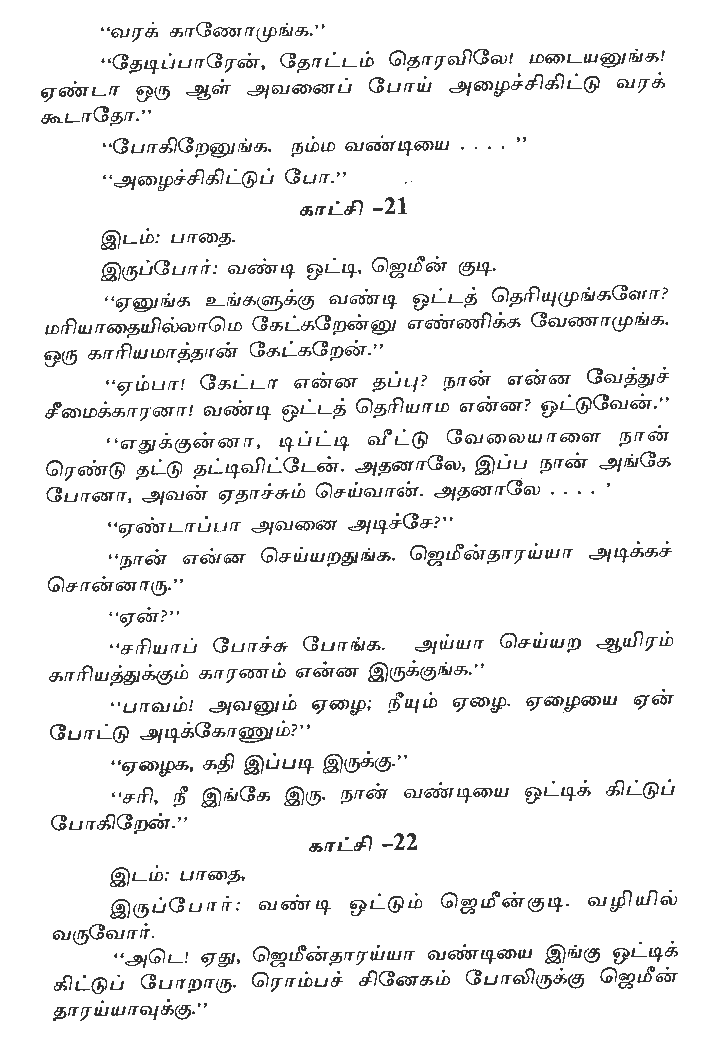 “வரக் காணோமுங்க.”
“தேடிப்பாரேன், தோட்டம் தொரவிலே! மடையனுங்க!
ஏண்டா ஒரு ஆள் அவனைப் போய் அழைச்சிகிட்டு வரக்
கூடாதோ.”
“போகிறேனுங்க. நம்ம வண்டியை . . . . ”
“அழைச்சிகிட்டுப் போ.”
காட்சி -21
இடம்: பாதை.
இருப்போர்: வண்டி ஒட்டி, ஜெமீன் குடி.
“ஏனுங்க உங்களுக்கு வண்டி ஒட்டத் தெரியுமுங்களோ?
மரியாதையில்லாமெ கேட்கறேன்னு எண்ணிக்க வேணாமுங்க.
ஒரு காரியமாத்தான் கேட்கறேன்.”
“ஏம்பா! கேட்டா என்ன தப்பு? நான் என்ன வேத்துச்
சீமைக்காரனா! வண்டி ஒட்டத் தெரியாம என்ன? ஒட்டுவேன்.”
“எதுக்குன்னா, டிப்ட்டி வீட்டு வேலையாளை நான்
ரெண்டு தட்டு தட்டிவிட்டேன். அதனாலே, இப்ப நான் அங்கே
போனா, அவன் ஏதாச்சும் செய்வான். அதனாலே . . . . ’
“ஏண்டாப்பா அவனை அடிச்சே?”
“நான் என்ன செய்யறதுங்க. ஜெமீன்தாரய்யா அடிக்கச்
சொன்னாரு.”
“ஏன்?”
“சரியாப் போச்சு போங்க. அய்யா செய்யற ஆயிரம்
காரியத்துக்கும் காரணம் என்ன இருக்குங்க.”
“பாவம்! அவனும் ஏழை; நீயும் ஏழை. ஏழையை ஏன்
போட்டு அடிக்கோணும்?”
“ஏழைக, கதி இப்படி இருக்கு.”
“சரி, நீ இங்கே இரு. நான் வண்டியை ஒட்டிக் கிட்டுப்
போகிறேன்.”
காட்சி -22
இடம்: பாதை,
இருப்போர்: வண்டி ஒட்டும் ஜெமீன்குடி. வழியில்
வருவோர்.
“அடெ! ஏது, ஜெமீன்தாரய்யா வண்டியை இங்கு ஒட்டிக்
கிட்டுப் போறாரு. ரொம்பச் சினேகம் போலிருக்கு ஜெமீன்
தாரய்யாவுக்கு.”